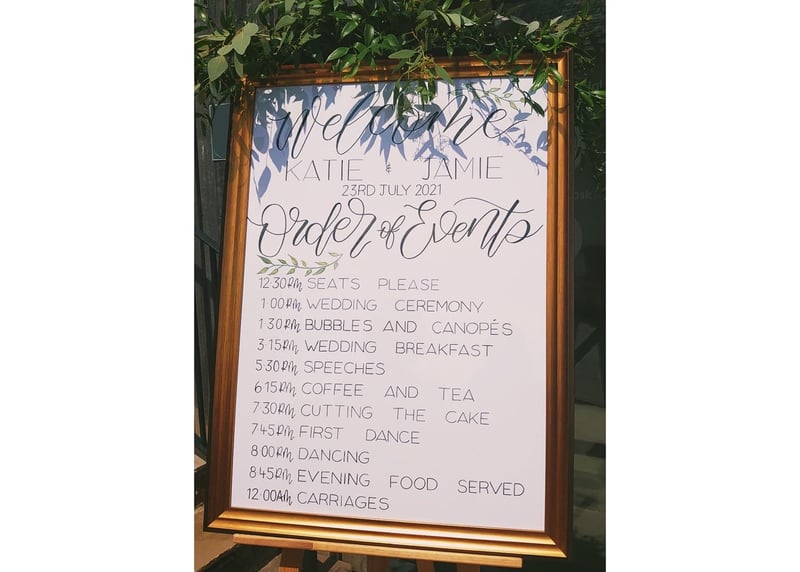 Welcome
KATIE & JAMIE
23RD JULY 2021
Order of Events
12:30PM SEATS PLEASE
1:00PM WEDDING CEREMONY
1:30PM BUBBLES AND CANOPÉS
3:15PM WEDDING BREAKFAST
5:30PM SPEECHES
6:15PM COFFEE AND TEA
7:30PM CUTTING THE CAKE
7:45PM FIRST DANCE
8:00PM DANCING
8:45PM EVENING FOOD SERVED
12:00AM CARRIAGES